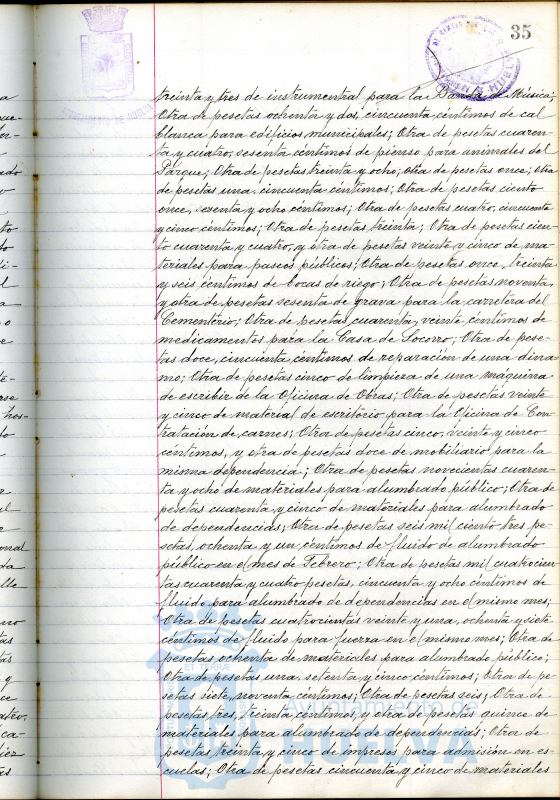 35
treinta y tres de instrumental para la Banda de Música;
Otra de pesetas ochenta y dos, cincuenta céntimos de cal
blanca para edificios municipales; Otra de pesetas cuaren-
ta y cuatro, sesenta céntimos de pienso para animales del
Parque; Otra de pesetas treinta y ocho; otra de pesetas once; otra
de pesetas una, cincuenta céntimos; Otra de pesetas ciento
once, sesenta y ocho céntimos; Otra de pesetas cuatro, cincuenta
y cinco céntimos; Otra de pesetas treinta; Otra de pesetas cien-
to cuarenta y cuatro, y otra de pesetas veinte y cinco de ma-
teriales para paseos públicos; Otra de pesetas once, treinta
y seis céntimos de bocas de riego; Otra de pesetas noventa,
y otra de pesetas sesenta de grava para la carretera del
Cementerio; Otra de pesetas cuarenta, veinte céntimos de
medicamentos para la Casa de Socorro; Otra de pese-
tas doce, cincuenta céntimos de reparación de una dina-
mo; Otra de pesetas cinco de limpieza de una máquina
de escribir de la Oficina de Obras; Otra de pesetas veinte
y cinco de material de escritorio para la Oficina de Con-
tratación de carnes; Otra de pesetas cinco, veinte y cinco
céntimos, y otra de pesetas doce de mobiliario para la
misma dependencia; Otra de pesetas novecientas cuaren-
ta y ocho de materiales para alumbrado público; Otra de
pesetas cuarenta y cinco de materiales para alumbrado
de dependencias; Otra de pesetas seis mil ciento tres pe-
setas, ochenta y un céntimos de fluido de alumbrado
público en el mes de Febrero; Otra de pesetas mil cuatrocien-
tas cuarenta y cuatro pesetas, cincuenta y ocho céntimos de
fluido para alumbrado de dependencias en el mismo mes;
Otra de pesetas cuatrocientas veinte y una, ochenta y siete
céntimos de fluido para fuerza en el mismo mes; Otra de
pesetas ochenta de materiales para alumbrado público;
Otra de pesetas una, setenta y cinco céntimos; Otra de pe-
setas siete, noventa céntimos; Otra de pesetas seis; Otra de
pesetas tres, treinta céntimos, y otra de pesetas quince de
materiales para alumbrado de dependencias; Otra de
pesetas treinta y cinco de impresos para admisión en es-
cuelas; Otra de pesetas cincuenta y cinco de materiales
Ayuntamiento de
HUELVA